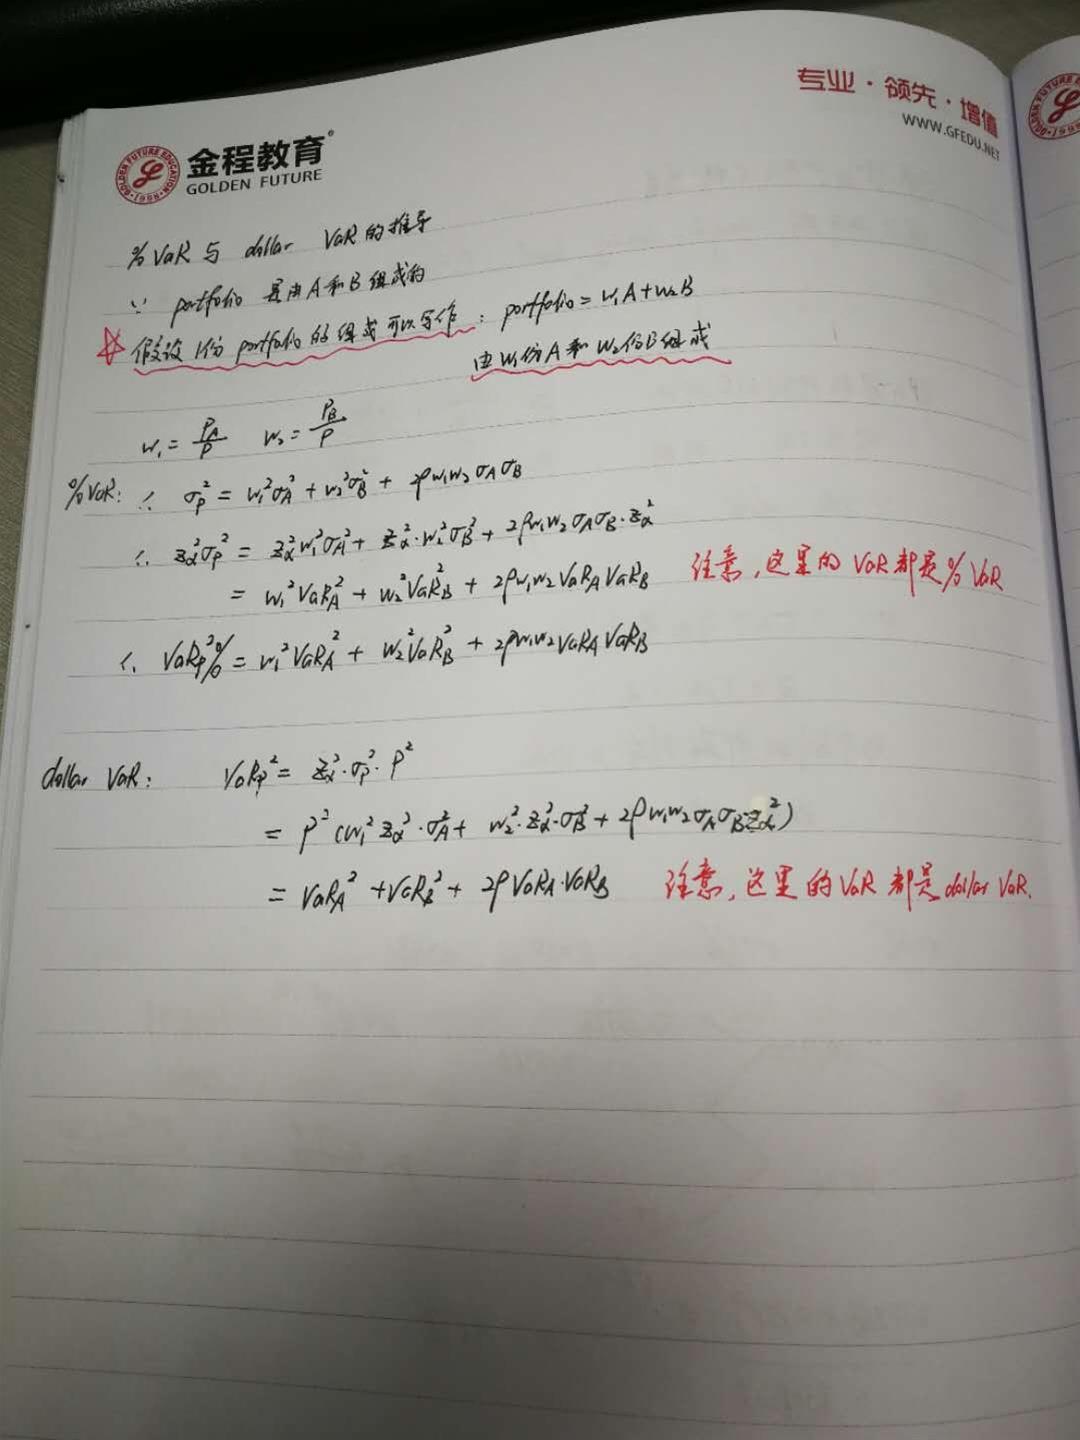 专业·领先·增值
WWW.GFEDU.NET
金程教育®
GOLDEN FUTURE
GOLDEN FUTURE EDUCATION ·1998·
%VaR 与 dollar VaR 的推导
∵ portfolio 是由A和B组成的
☆ 假设1份portfolio的组成可以写作: portfolio = w₁A+w₂B
由w₁份A和w₂份B组成
w₁ = P_A/P w₂ = P_B/P
%VaR: ∴ σ_P² = w₁²σ_A² + w₂²σ_B² + 2ρw₁w₂σ_Aσ_B
∴ z_α²σ_P² = z_α²w₁²σ_A² + z_α²·w₂²σ_B² + 2ρw₁w₂σ_Aσ_B·z_α²
= w₁²VaR_A² + w₂²VaR_B² + 2ρw₁w₂VaR_AVaR_B 注意,这里的VaR都是%VaR
∴ VaR_P²% = w₁²VaR_A² + w₂²VaR_B² + 2ρw₁w₂VaR_AVaR_B
dollar VaR: VaR_P² = z_α²·σ_P²·P²
= P²(w₁²z_α²·σ_A² + w₂²·z_α²·σ_B² + 2ρw₁w₂σ_Aσ_Bz_α²)
= VaR_A² + VaR_B² + 2ρVaR_A·VaR_B 注意,这里的VaR都是dollar VaR.